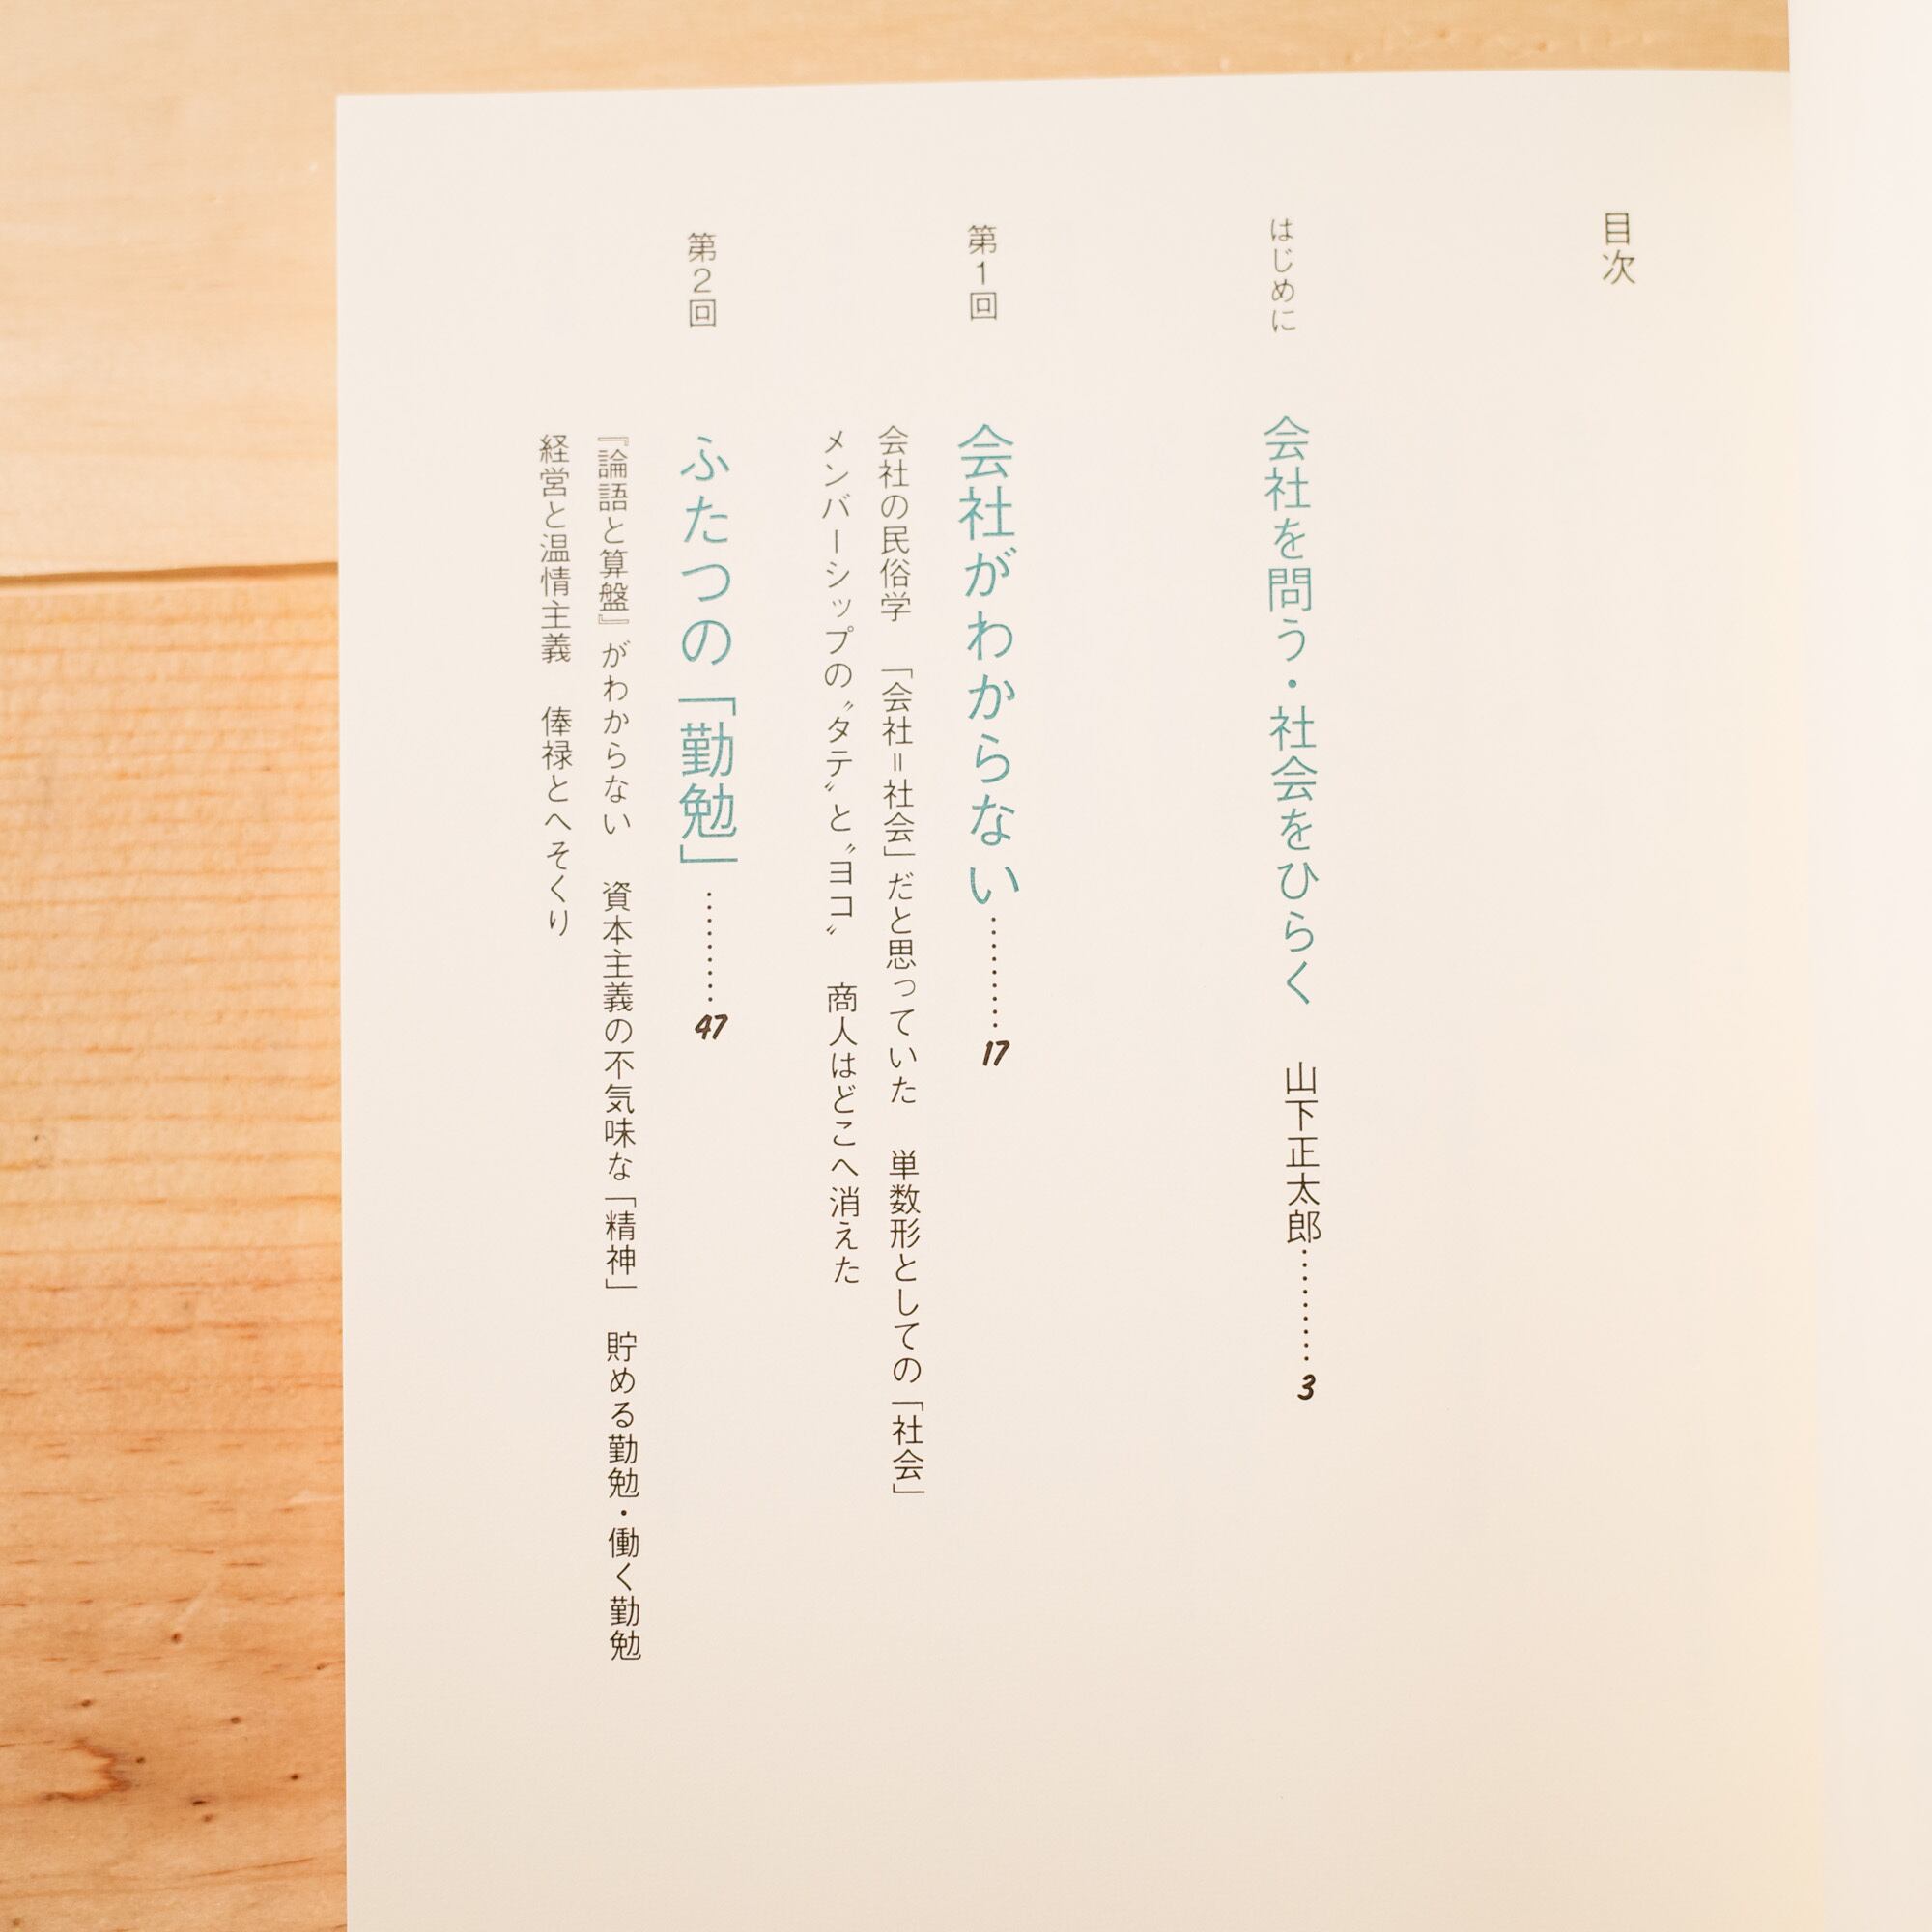 目次
はじめに 会社を問う・社会をひらく 山下正太郎………3
第1回 会社がわからない………17
会社の民俗学 「会社=社会」だと思っていた 単数形としての「社会」
メンバーシップの〝タテ〟と〝ヨコ〟 商人はどこへ消えた
第2回 ふたつの「勤勉」………47
『論語と算盤』がわからない 資本主義の不気味な「精神」 貯める勤勉・働く勤勉
経営と温情主義 俸禄とへそくり